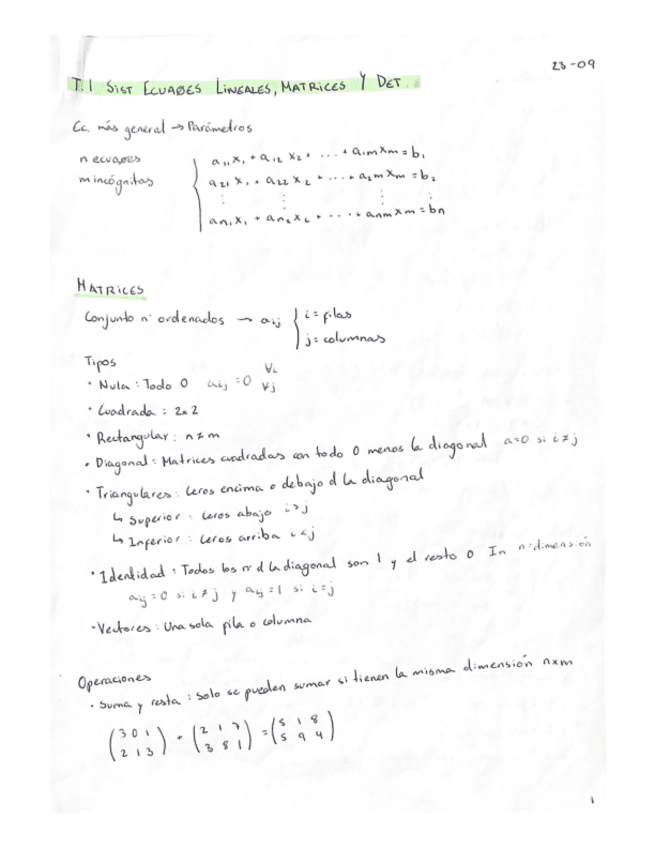 28-09
T.1 SIST ECUAØES LINEALES, MATRICES Y DET.
Ec. más general → Parámetros
n ecuaøes
m incógnitas
a₁₁x₁ + a₁₂x₂ + ... + a₁mxm = b₁
a₂₁x₁ + a₂₂x₂ + ... + a₂mxm = b₂
⋮ ⋮ ⋮ ⋮
an₁x₁ + an₂x₂ + ... + anmxm = bn
MATRICES
Conjunto nº ordenados → aij { i = filas
j = columnas
Tipos
· Nula : Todo 0 aij = 0 ∀i ∀j
· Cuadrada : 2x2
· Rectangular : n ≠ m
· Diagonal : Matrices cuadradas con todo 0 menos la diagonal a=0 si i≠j
· Triangulares : Ceros encima o debajo d la diagonal
↳ Superior : Ceros abajo i>j
↳ Inferior : Ceros arriba i<j
· Identidad : Todos los nº d la diagonal son 1 y el resto 0 In n:dimensión
aij = 0 si i≠j y aij = 1 si i=j
· Vectores : Una sola fila o columna
Operaciones
· Suma y resta : Solo se pueden sumar si tienen la misma dimensión nxm
(3 0 1) + (2 1 7) = (5 1 8)
(2 1 3) (3 8 1) (5 9 4)
1